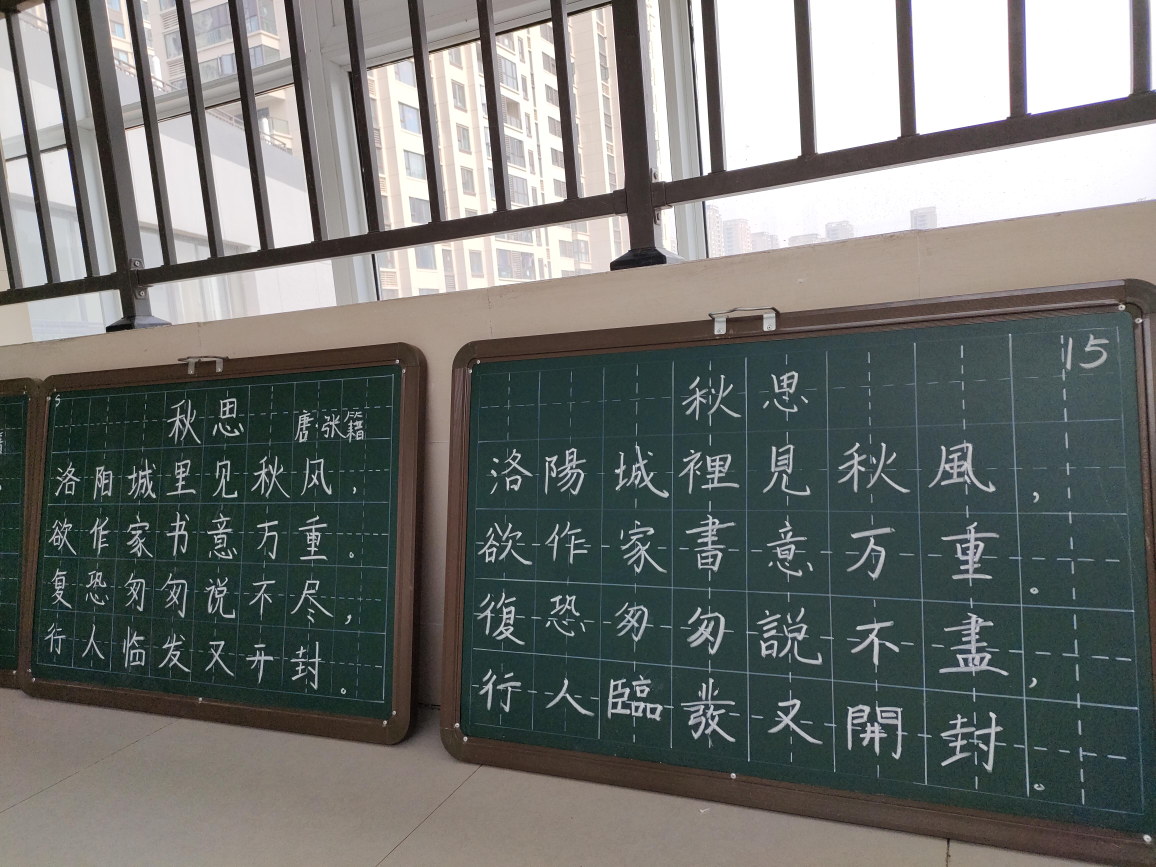 秋思
唐·张籍
洛阳城里见秋风，
欲作家书意万重。
复恐匆匆说不尽，
行人临发又开封。
15
秋思
洛陽城裡見秋風，
欲作家書意万重。
復恐匆匆説不盡，
行人臨發又開封。